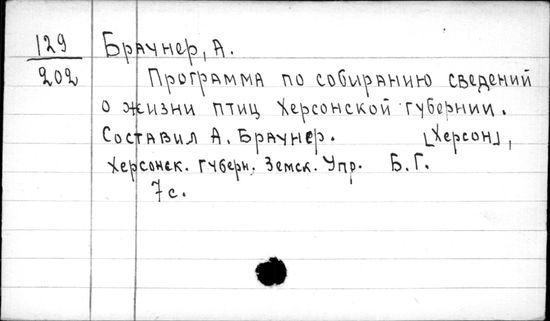 129
202
Браунер, А.
Программа по собиранию сведений
о жизни птиц Херсонской губернии.
Составил А. Браунер. [Херсон],
Херсонск. губерн. Земск. Упр. Б.Г.
7 с.